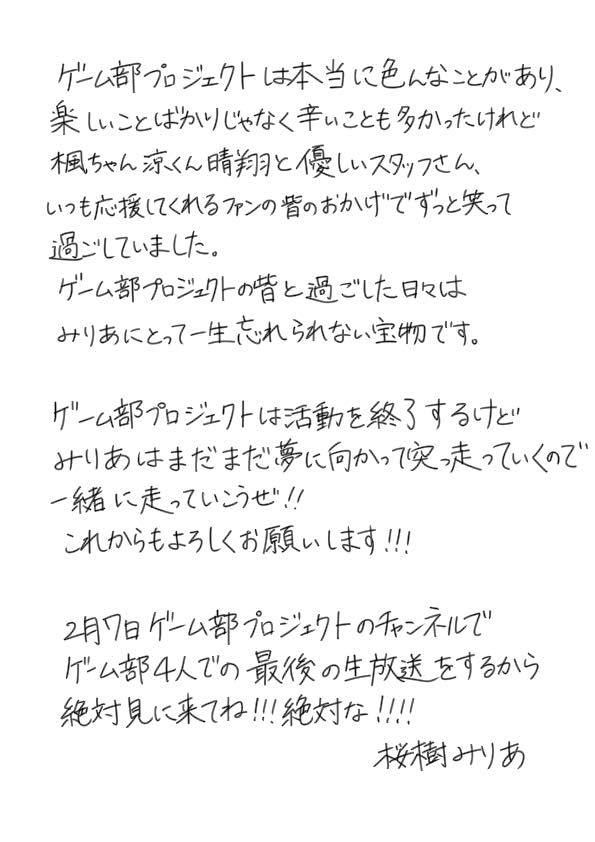 ゲーム部プロジェクトは本当に色んなことがあり、
楽しいことばかりじゃなく辛いことも多かったけれど
楓ちゃん涼くん晴翔と優しいスタッフさん、
いつも応援してくれるファンの皆のおかげでずっと笑って
過ごしていました。
ゲーム部プロジェクトの皆と過ごした日々は
みりあにとって一生忘れられない宝物です。
ゲーム部プロジェクトは活動を終了するけど
みりあはまだまだ夢に向かって突っ走っていくので
一緒に走っていこうぜ!!
これからもよろしくお願いします!!!
2月7日ゲーム部プロジェクトのチャンネルで
ゲーム部4人での最後の生放送をするから
絶対見に来てね!!!絶対な!!!!
桜樹みりあ